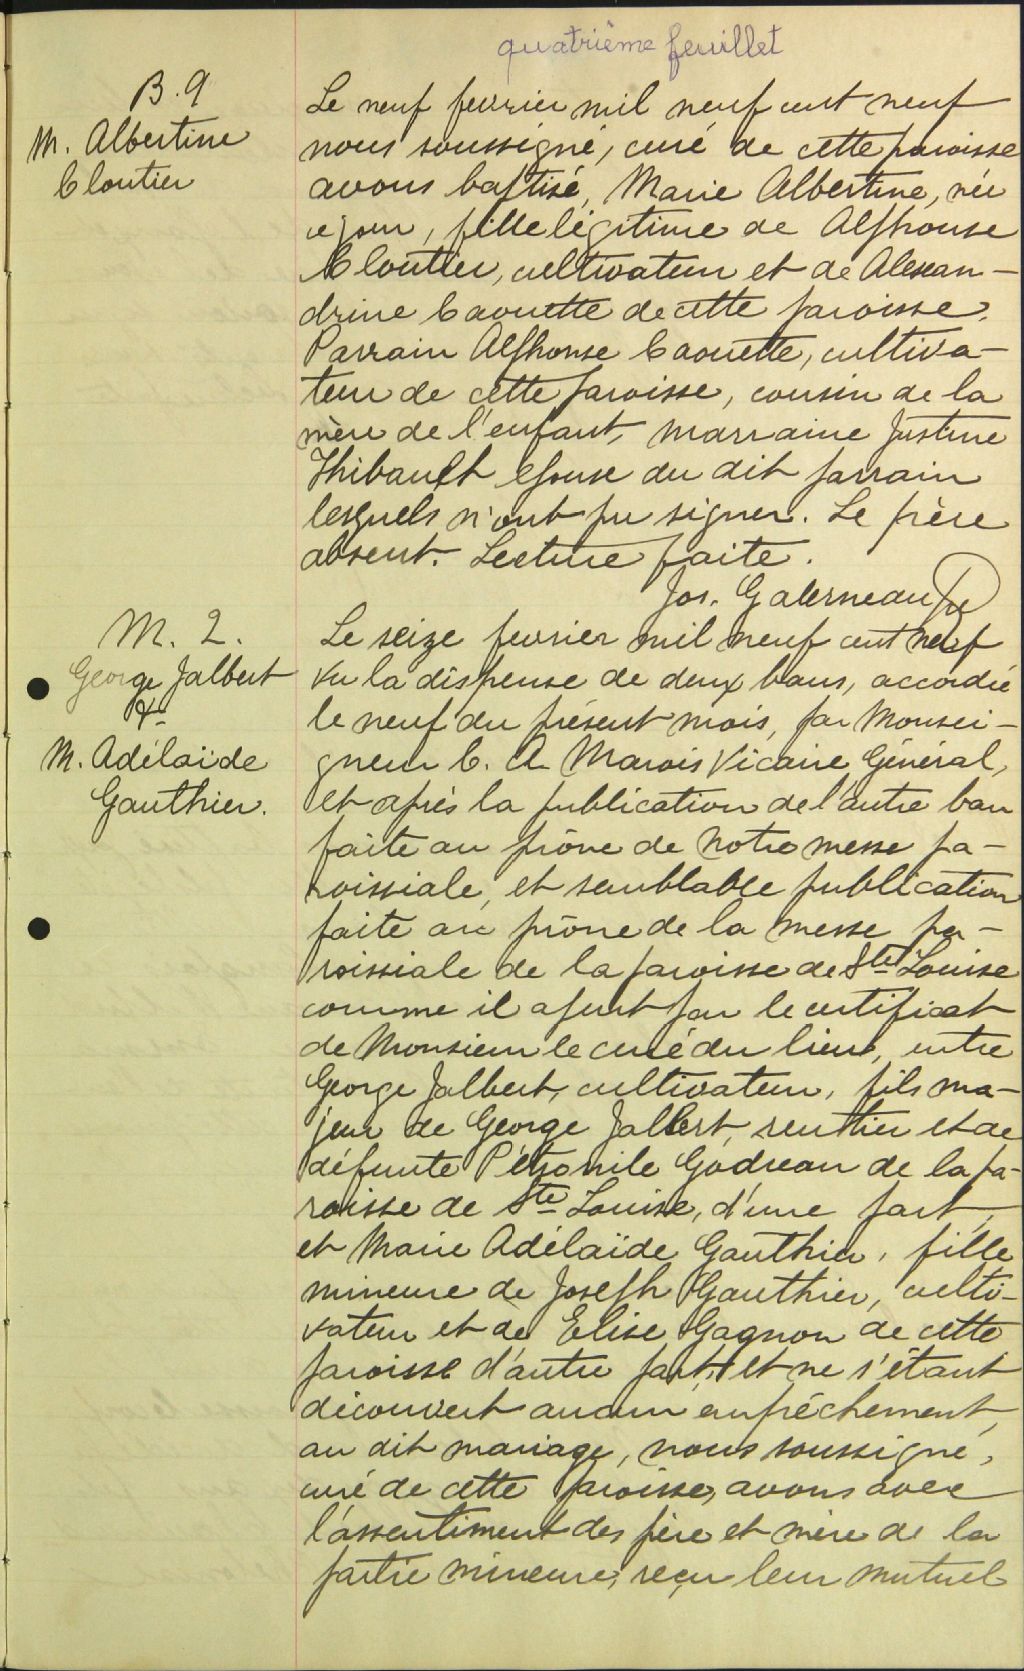 quatrième feuillet
B. 9
M. Albertine
Cloutier
Le neuf fevrier mil neuf cent neuf
nous soussigné, curé de cette paroisse
avons baptisé, Marie Albertine, née
ce jour, fille légitime de Alphonse
Cloutier, cultivateur et de Alexan-
drine Caouette de cette paroisse.
Parrain Alphonse Caouette, cultiva-
teur de cette paroisse, cousin de la
mère de l'enfant, marraine Justine
Thibault épouse du dit parrain
lesquels n'ont pu signer. Le père
absent. Lecture faite.
Jos. Galerneau Ptre
M. 2.
George Jalbert
&
M. Adélaïde
Gauthier.
Le seize fevrier mil neuf cent neuf
vu la dispense de deux bans, accordée
le neuf du présent mois, par Monsei-
gneur C. A Marois Vicaire Général,
et après la publication de l'autre ban
faite au prône de notre messe pa-
roissiale, et semblable publication
faite au prône de la messe pa-
roissiale de la paroisse de Ste Louise
comme il apert par le certificat
de Monsieur le curé du lieu, entre
George Jalbert, cultivateur, fils ma-
jeur de George Jalbert, rentier et de
défunte Pétronile Godreau de la pa-
roisse de Ste Louise, d'une part,
et Marie Adélaïde Gauthier, fille
mineure de Joseph Gauthier, culti-
vateur et de Elise Gagnon de cette
paroisse d'autre part, et ne s'étant
découvert aucun empêchement,
au dit mariage, nous soussigné,
curé de cette paroisse, avons avec
l'assentiment des père et mère de la
partie mineure, reçu leur mutuel